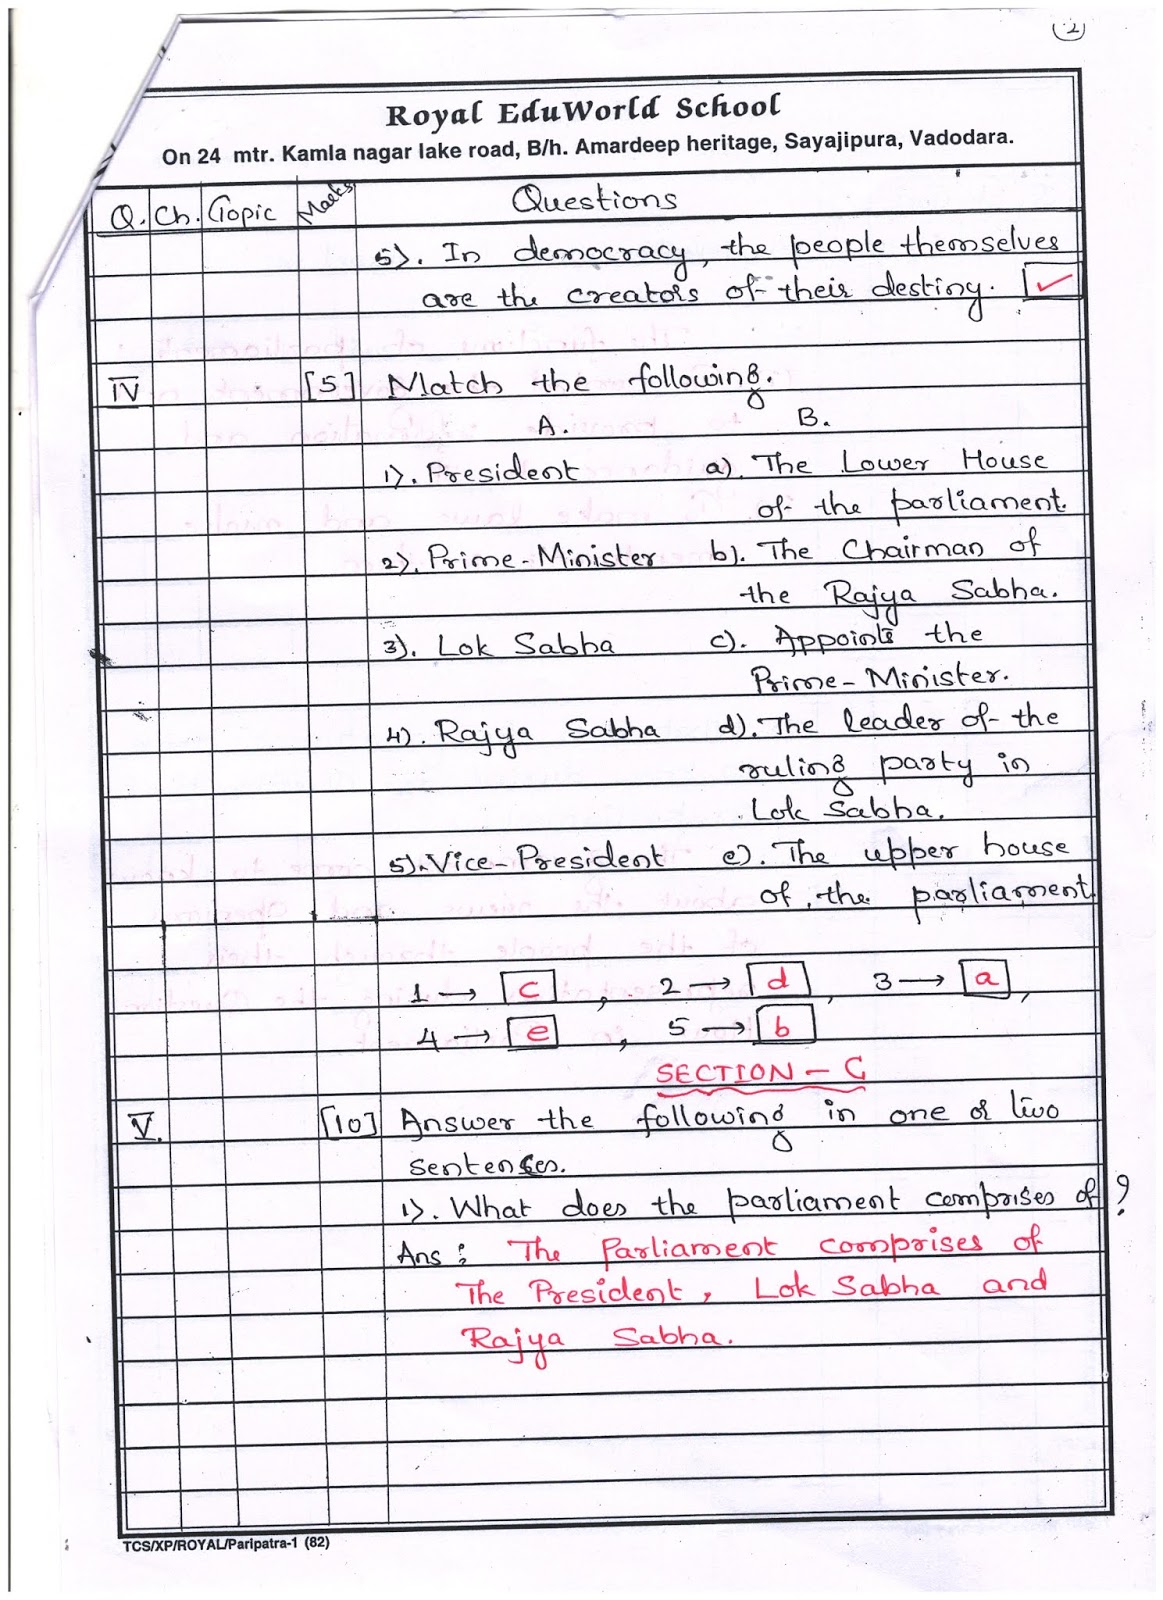 2
Royal EduWorld School
On 24 mtr. Kamla nagar lake road, B/h. Amardeep heritage, Sayajipura, Vadodara.
Q. Ch. Topic Marks Questions
5). In democracy, the people themselves
are the creators of their destiny. ✓
IV [5] Match the following.
A. B.
1). President a). The Lower House
of the parliament.
2). Prime-Minister b). The Chairman of
the Rajya Sabha.
3). Lok Sabha c). Appoints the
Prime-Minister.
4). Rajya Sabha d). The leader of the
ruling party in
Lok Sabha.
5). Vice-President e). The upper house
of the parliament
1 → c , 2 → d , 3 → a ,
4 → e , 5 → b
SECTION - C
V. [10] Answer the following in one or two
sentences.
1). What does the parliament comprises of?
Ans : The Parliament comprises of
The President, Lok Sabha and
Rajya Sabha.
TCS/XP/ROYAL/Paripatra-1 (82)